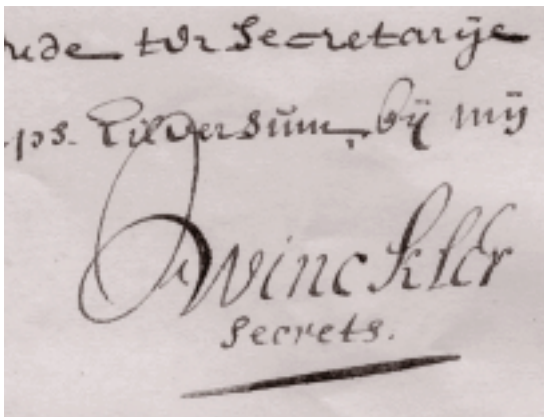 rede ter Secretarije
ps. Hilversum, bij mij
Winckler
Secrets.